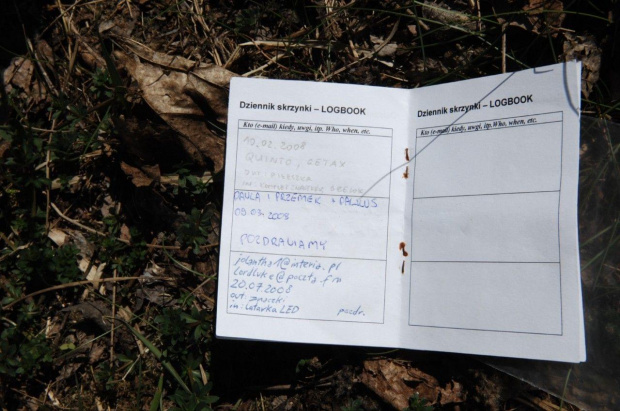 Dziennik skrzynki – LOGBOOK
Kto (e-mail) kiedy, uwgi, itp. Who, when, etc.
QUINTO, CETAX
PAULA I PRZEMEK + PAULUS
08.03.2008
POZDRAWIAMY
jolantha1@interia.pl
Lordluke@poczta.fm
20.07.2008
out: znaczki
in: Latarka LED pozdr.
Dziennik skrzynki – LOGBOOK
Kto (e-mail) kiedy, uwgi, itp. Who, when, etc.